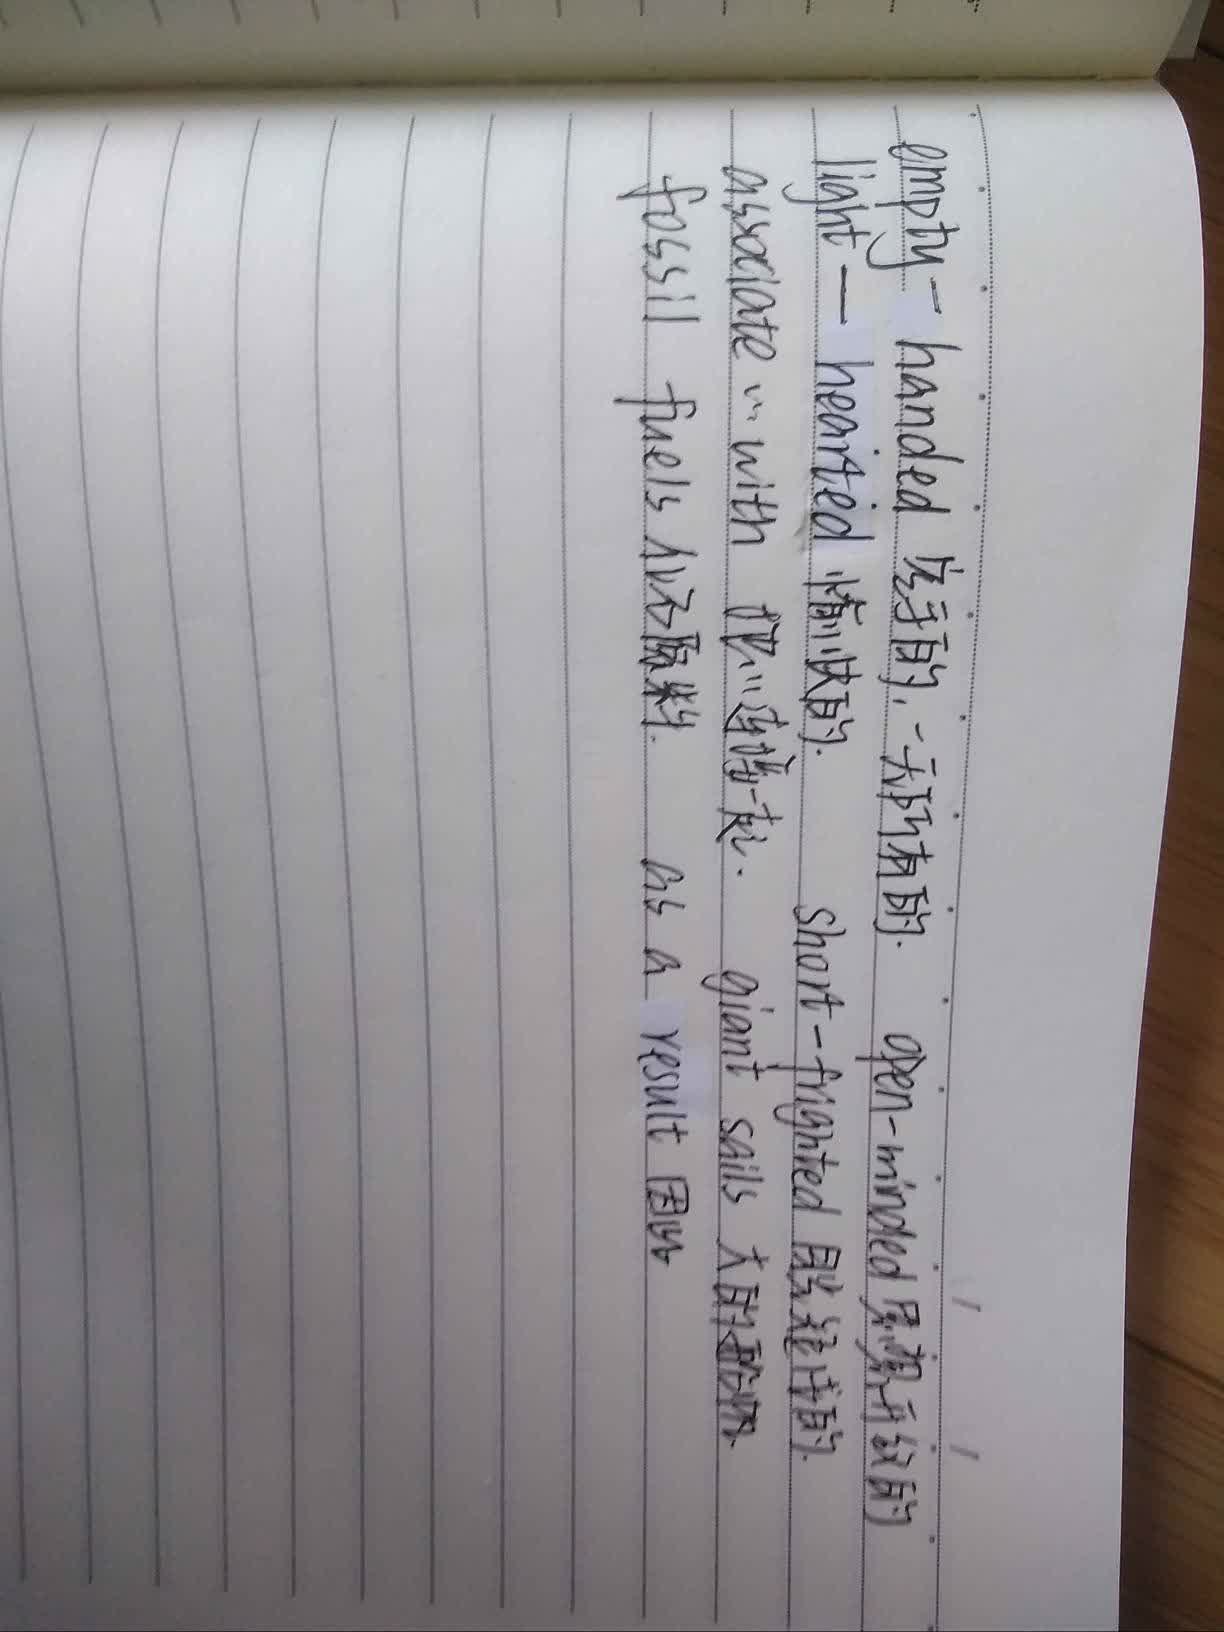 empty-handed 空手的,一无所有的. open-minded 思想开放的
light—hearted 愉快的. short-frighted 眼光短浅的.
associate…with 把…与…联系在一起. giant sails 大的
fossil fuels 化石原料. as a result 因此